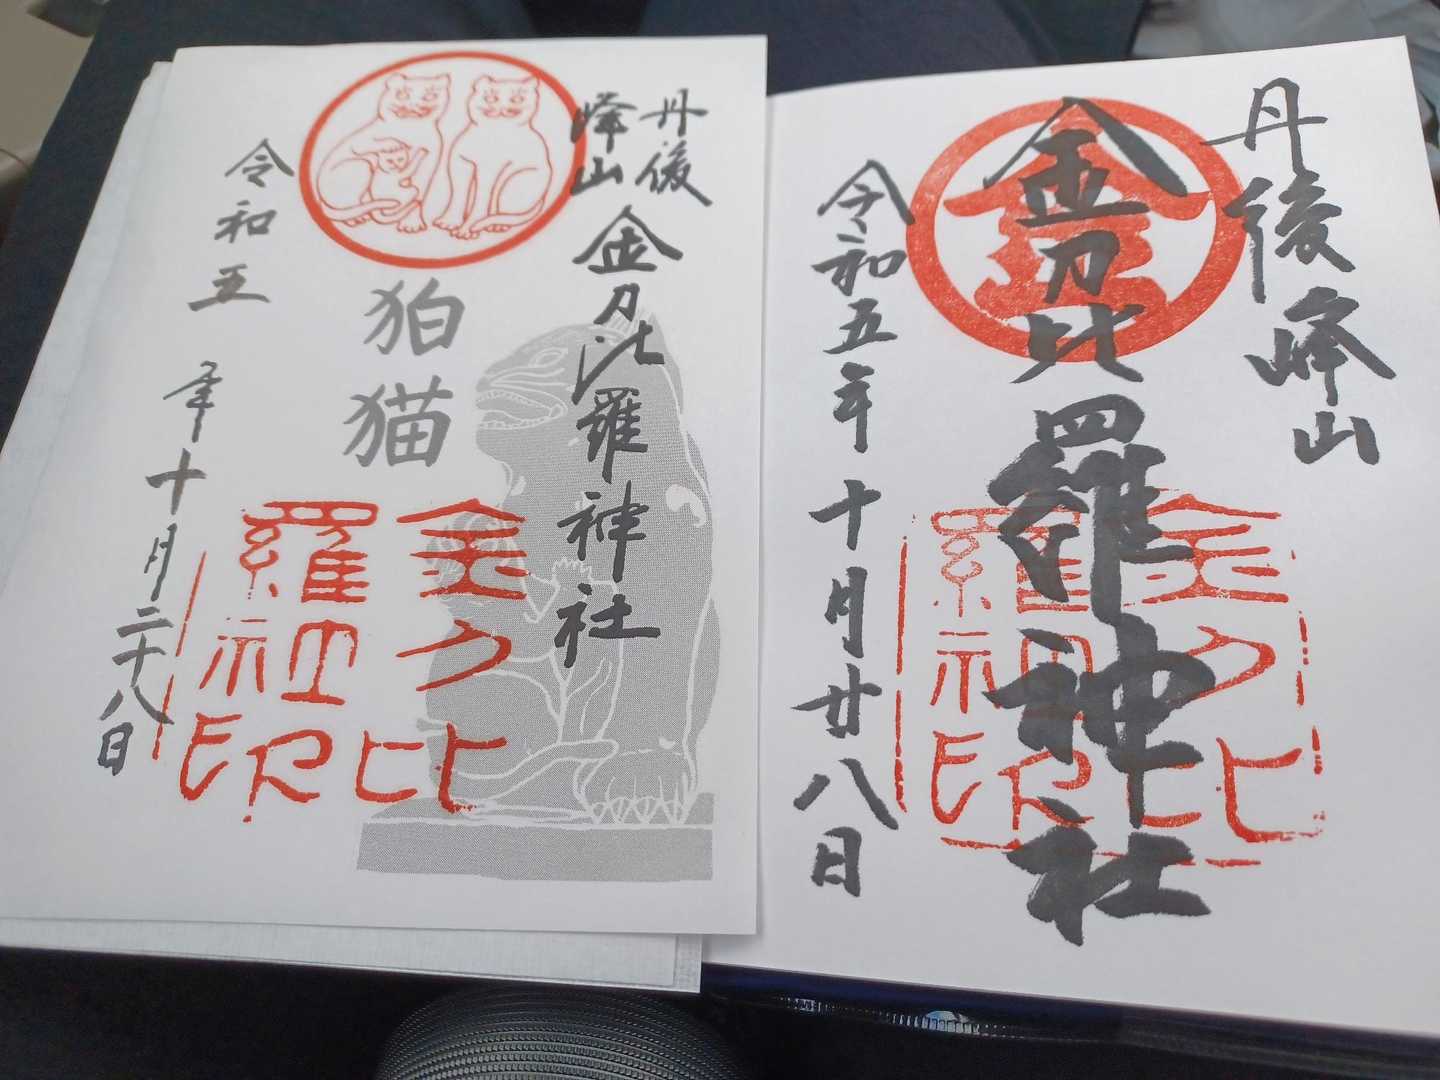 丹後
峰山
金刀比羅神社
狛猫
令和五年十月二十八日
金刀比
羅神
社印
丹後峰山
金
金刀比羅神社
令和五年十月廿八日
金刀比
羅神
社印